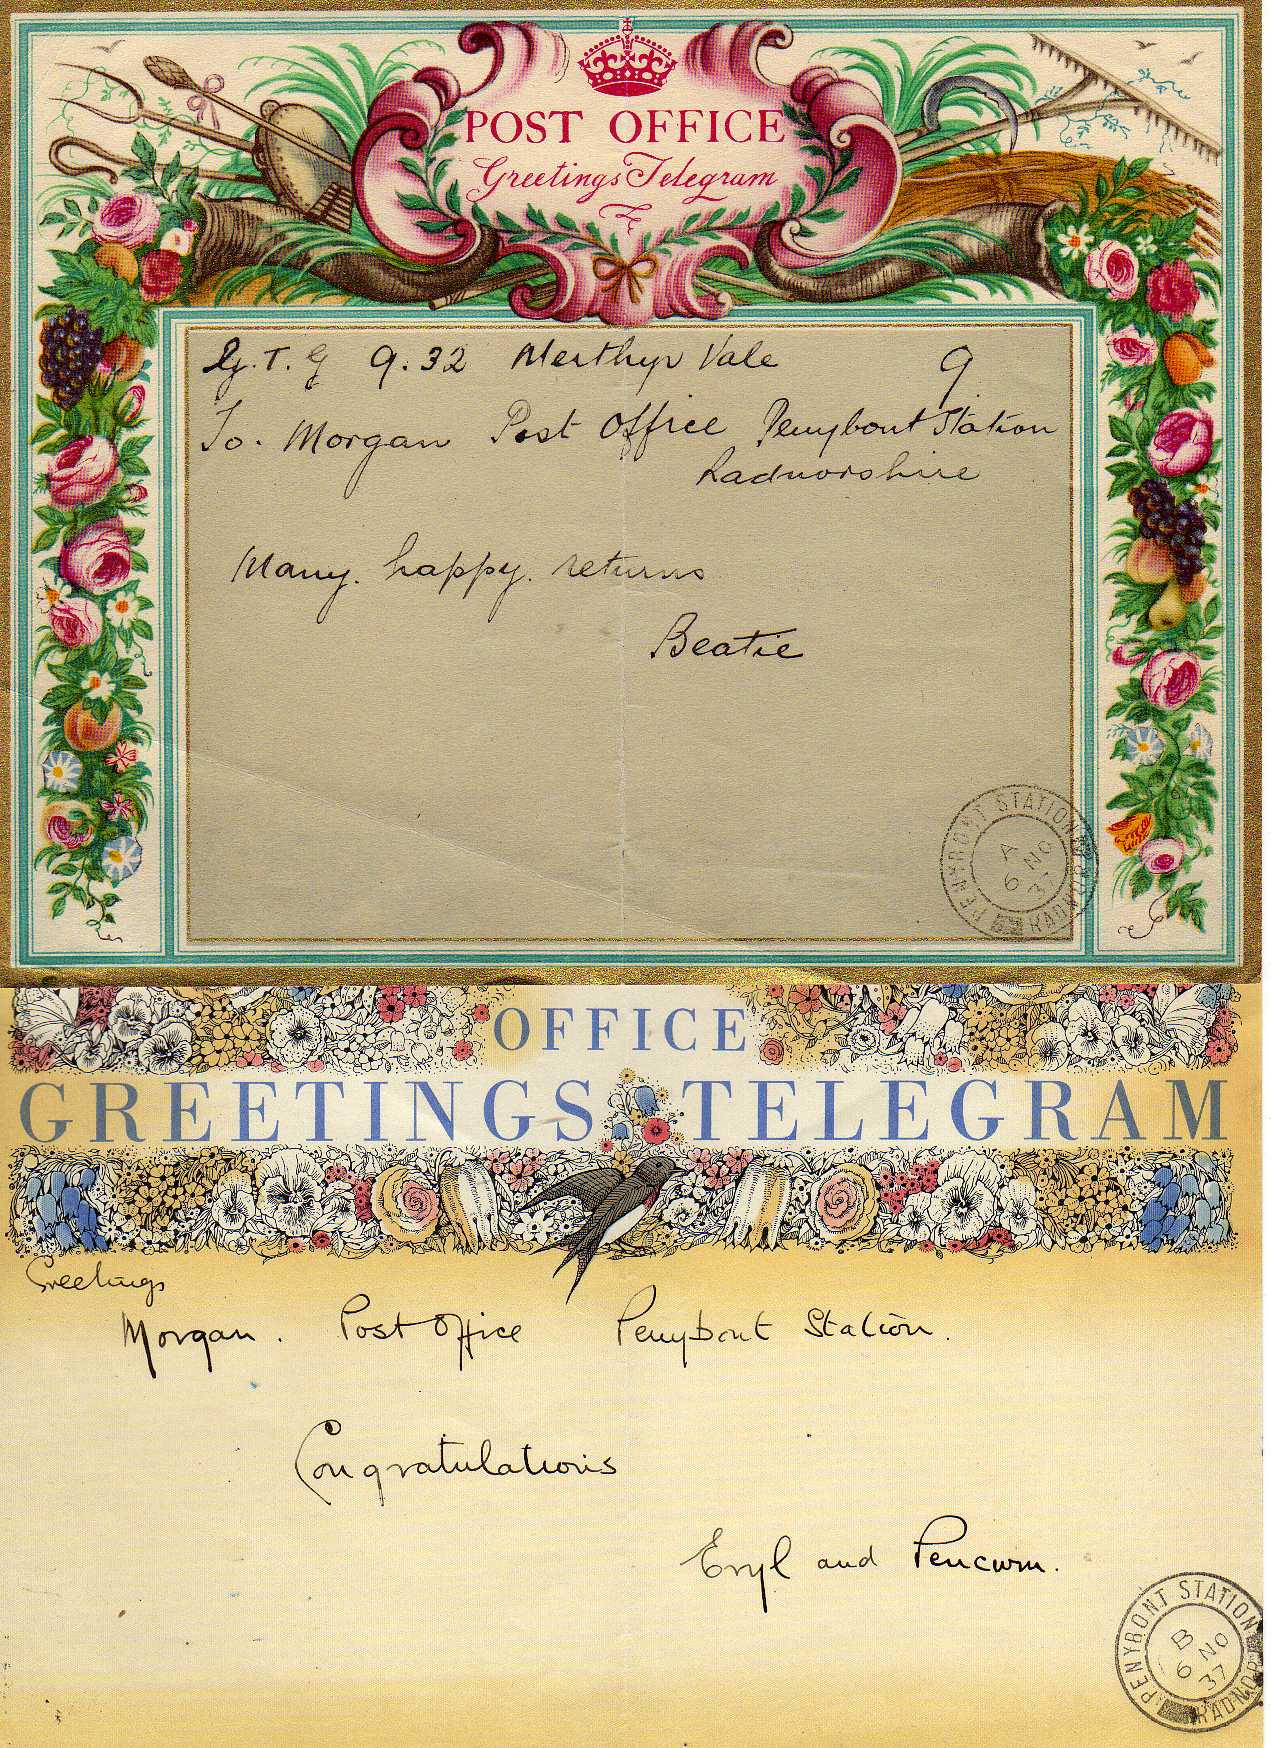 POST OFFICE
Greetings Telegram
9.32 Merthyr Vale 9
To. Morgan Post Office Penybont Station
Radnorshire
Many. happy. returns
Beatie
PENYBONT STATION RADNOR
A
6 NO
37
OFFICE
GREETINGS TELEGRAM
Greetings
Morgan. Post Office Penybont Station.
Congratulations
Eryl and Pencwm.
PENYBONT STATION RADNOR
B
6 NO
37